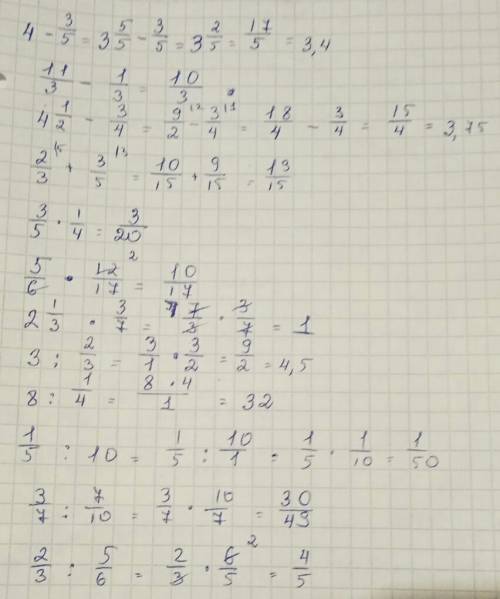 4 - 3/5 = 3 5/5 - 3/5 = 3 2/5 = 17/5 = 3,4
11/3 - 1/3 = 10/3 .
4 1/2 - 3/4 = 9/2 - 3/4 = 18/4 - 3/4 = 15/4 = 3,75
2/3 + 3/5 = 10/15 + 9/15 = 13/15
3/5 · 1/4 = 3/20
5/6 · 12/17 = 10/17
2 1/3 · 3/7 = 7/3 · 3/7 = 1
3 : 2/3 = 3/1 · 3/2 = 9/2 = 4,5
8 : 1/4 = 8 · 4/1 = 32
1/5 : 10 = 1/5 : 10/1 = 1/5 · 1/10 = 1/50
3/7 : 7/10 = 3/7 · 10/7 = 30/49
2/3 : 5/6 = 2/3 · 6/5 = 4/5